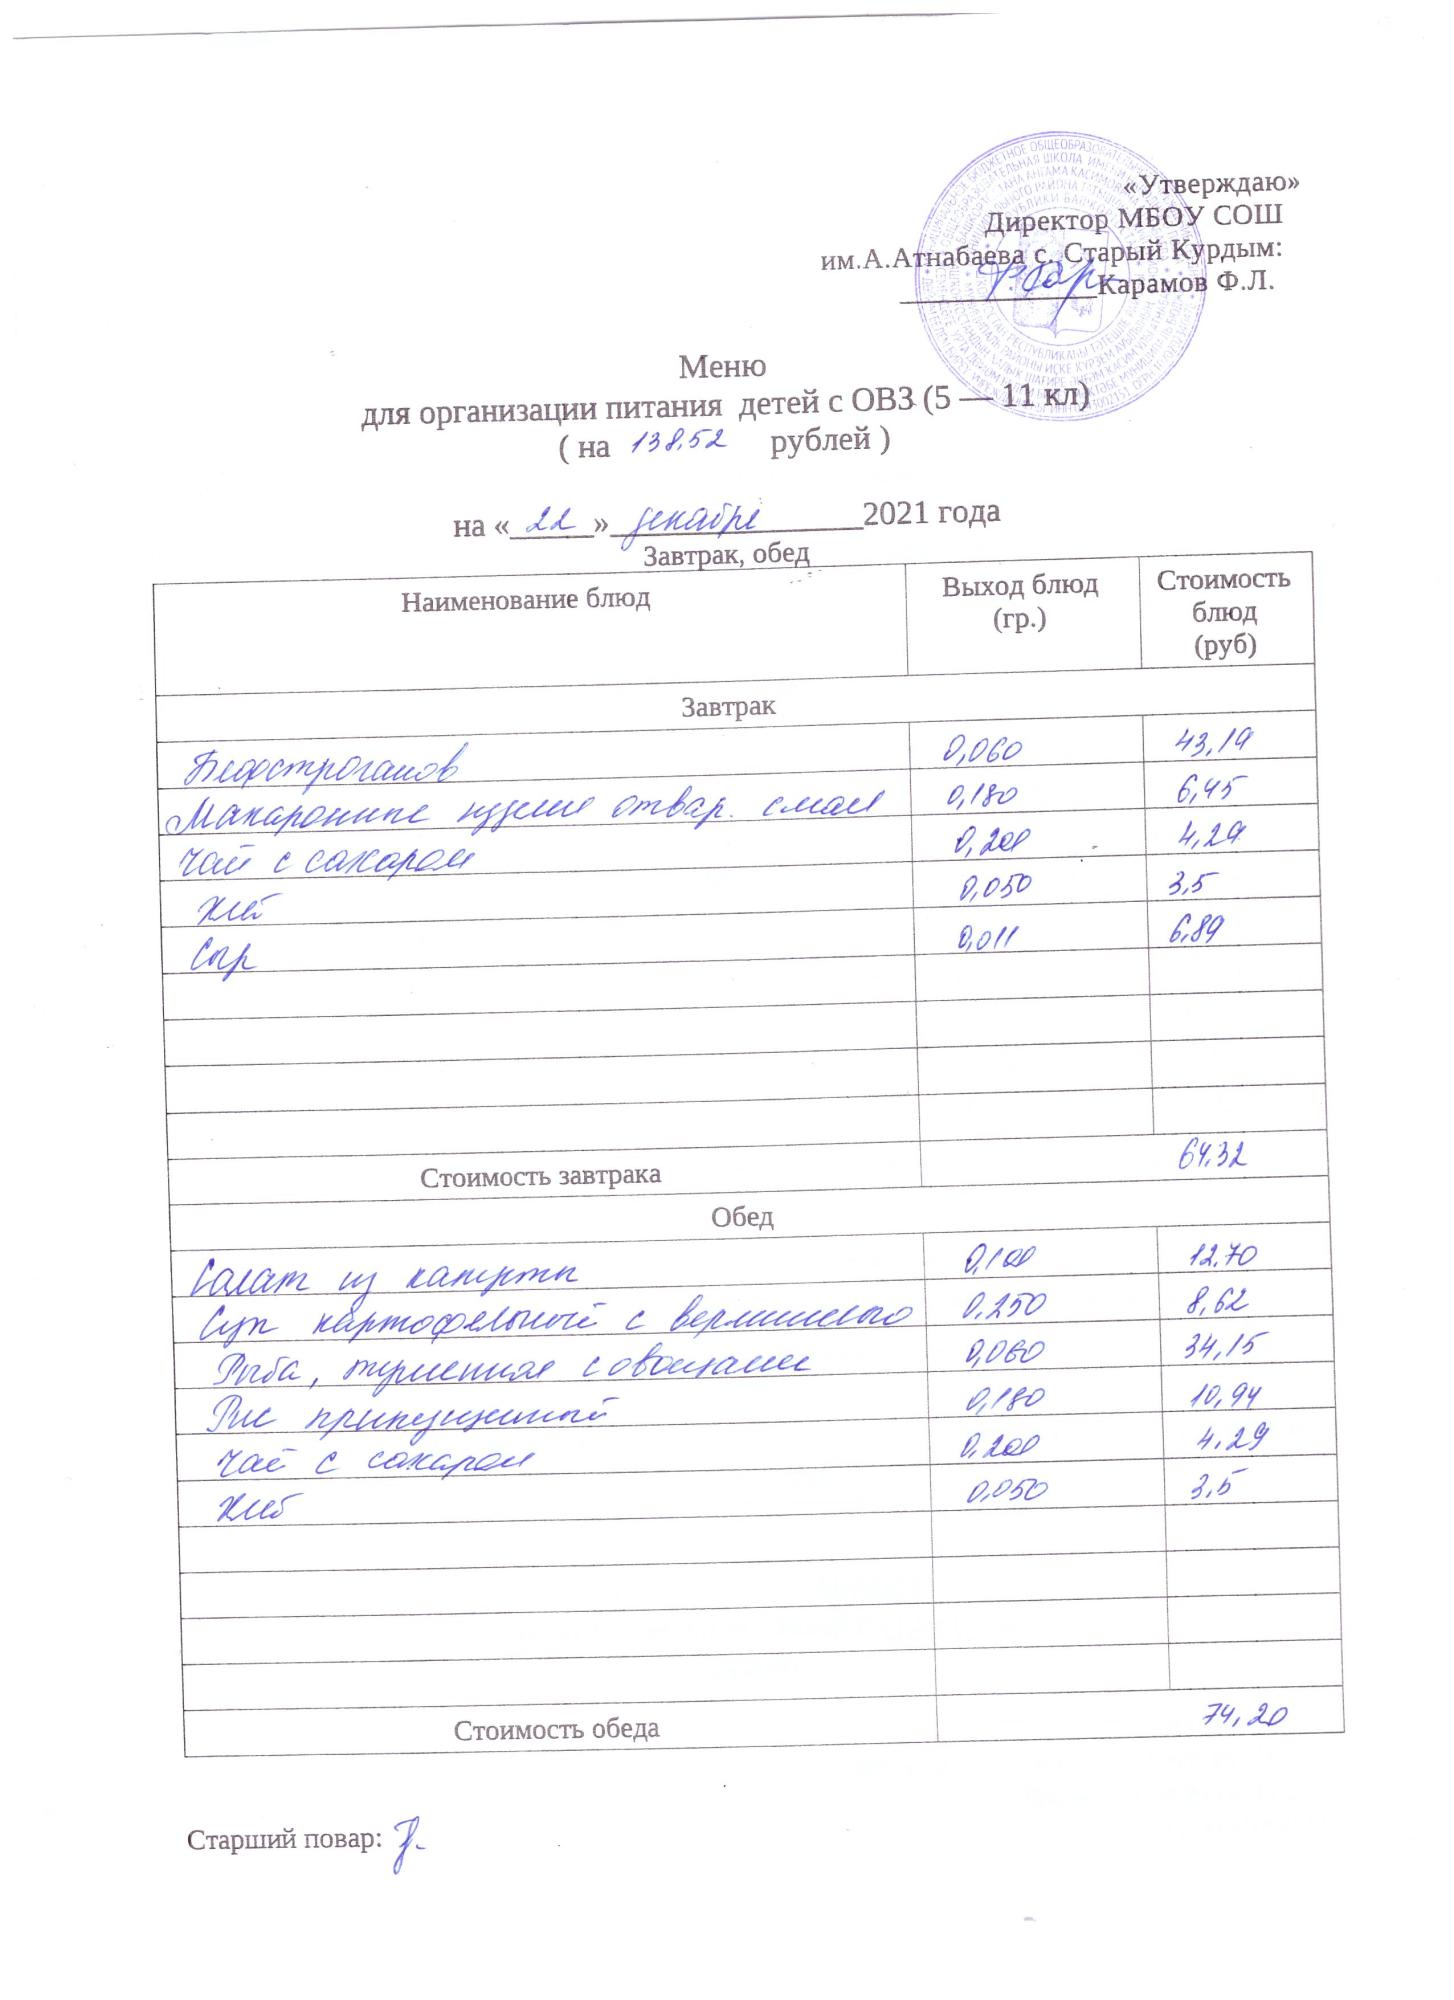 «Утверждаю»
Директор МБОУ СОШ
им.А.Атнабаева с. Старый Курдым:
______________Карамов Ф.Л.
Меню
для организации питания детей с ОВЗ (5 — 11 кл)
( на 138,52 рублей )
на « 22 » декабря 2021 года
Завтрак, обед
Наименование блюд Выход блюд (гр.) Стоимость блюд (руб)
Завтрак
Бефстроганов 0,060 43,19
Макаронные изделия отвар. с маслом 0,180 6,45
Чай с сахаром 0,200 4,29
Хлеб 0,050 3,5
Сыр 0,011 6,89
Стоимость завтрака 64,32
Обед
Салат из капусты 0,100 12,70
Суп картофельный с вермишелью 0,250 8,62
Рыба, тушенная с овощами 0,060 34,15
Рис припущенный 0,180 10,94
Чай с сахаром 0,200 4,29
Хлеб 0,050 3,5
Стоимость обеда 74,20
Старший повар: